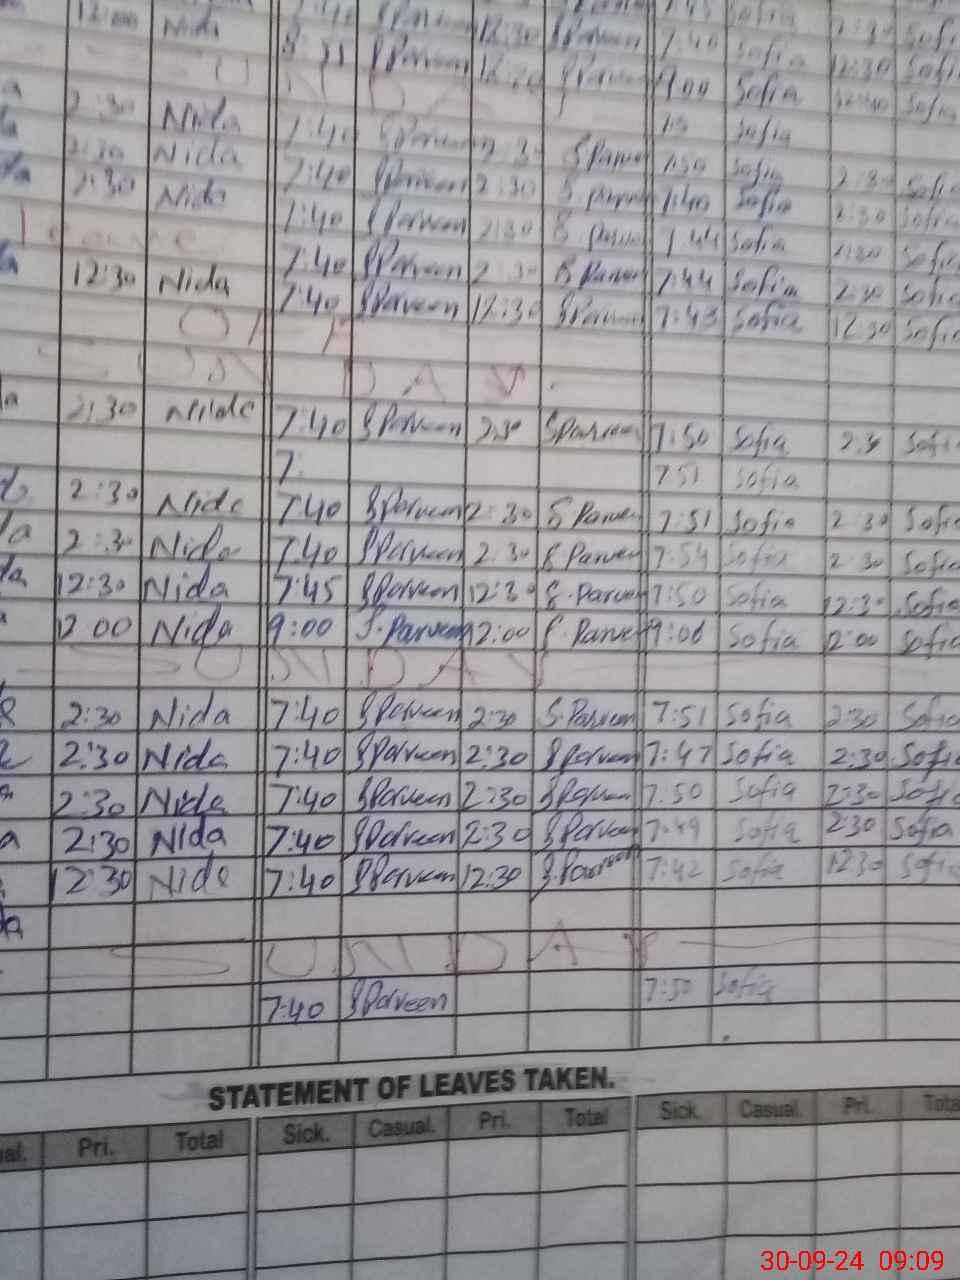 12:00 Nida 7:40 SParveen 12:30 SParveen 7:45 Sofia 2:30 Sofi
8:31 SParveen 7:40 Sofia 12:30 Sofi
SUNDAY 9:00 Sofia 12:40 Sofi
2:30 Nida 7:40 SParveen 2:3 SParvee Sofia
2:30 Nida 7:40 SParveen 2:30 S.Parve 7:50 Sofia 2:3 Sofi
2:30 Nida 7:40 SParveen 2:30 S.Parve 7:40 Sofia 2:30 Sofi
leave 7:40 SParveen 2:30 SParvee 7:44 Sofia 2:30 Sofi
12:30 Nida 7:40 SParveen 12:30 SParveen 7:44 Sofia 2:30 Sofi
OFF 7:43 Sofia 12:30 Sofi
SUNDAY
a 2:30 Nida 7:40 SParveen 2:30 SParveen 7:50 Sofia 2:30 Sofi
7: 7:51 Sofia
2:30 Nida 7:40 SParveen 2:30 S Parvee 7:51 Sofia 2:30 Sofi
da 2:30 Nida 7:40 SParveen 2:30 S Parvee 7:54 Sofia 2:30 Sofi
da 12:30 Nida 7:45 SParveen 12:30 S.Parvee 7:50 Sofia 12:30 Sofia
12:00 Nida 9:00 S.Parveen 12:00 S.Parvee 9:00 Sofia 12:00 Sofi
SUNDAY
2:30 Nida 7:40 SParveen 2:30 S.Parveen 7:51 Sofia 2:30 Sofia
2:30 Nida 7:40 SParveen 2:30 SParveen 7:47 Sofia 2:30 Sofia
2:30 Nida 7:40 SParveen 2:30 SParveen 7:50 Sofia 2:30 Sofia
a 2:30 Nida 7:40 SParveen 2:30 SParveen 7:49 Sofia 2:30 Sofia
12:30 Nida 7:40 SParveen 12:30 S.Parveen 7:42 Sofia 12:30 Sofia
da
SUNDAY
7:40 SParveen 7:50 Sofia
STATEMENT OF LEAVES TAKEN.
ual. Pri. Total Sick. Casual. Pri. Total Sick. Casual. Pri. Tota
30-09-24 09:09